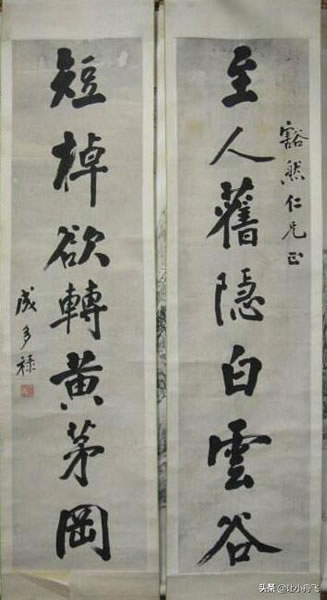 至人舊隱白雲谷
豁然仁兄正
短棹欲轉黄茅岡
成多禄
头条 @比小舟飞